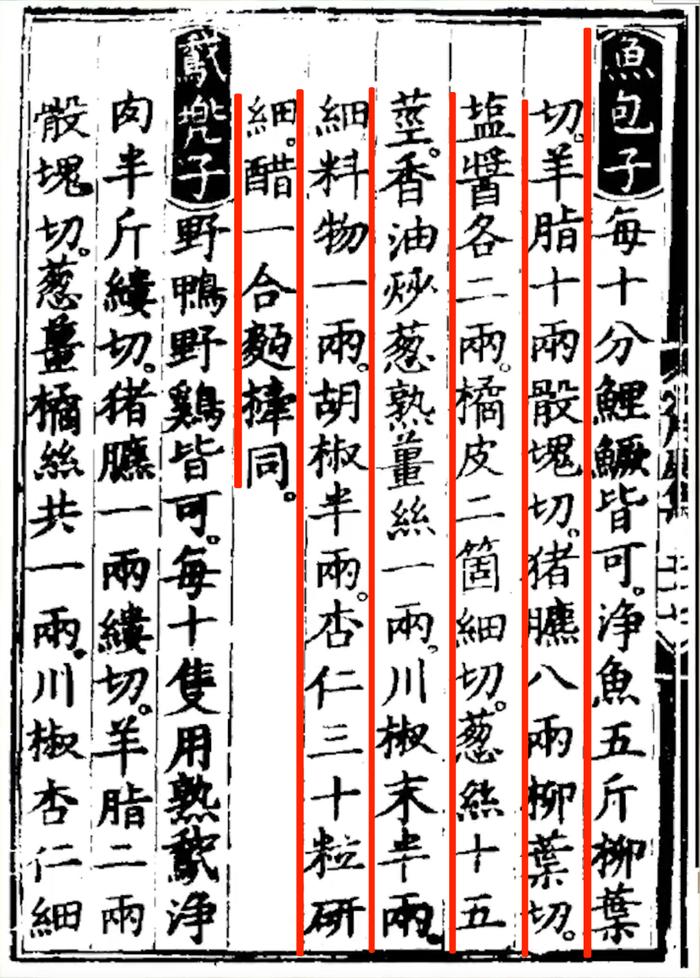 魚包子 每十分鯉鱖皆可。浄魚五斤柳葉
切。羊脂十兩骰塊切。猪臕八兩柳葉切。
塩醬各二兩。橘皮二箇細切。葱絲十五
莖。香油炒葱熟薑絲一兩。川椒末半兩。
細料物一兩。胡椒半兩。杏仁三十粒研
細。醋一合麵撁同。
鵞兠子 野鴨野鷄皆可。每十隻用熟鵞浄
肉半斤縷切。猪臕一兩縷切。羊脂二兩
骰塊切。葱薑橘絲共一兩。川椒杏仁細